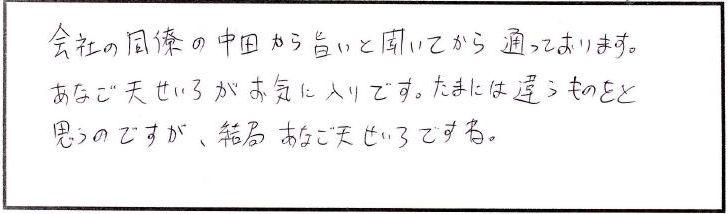 会社の同僚の中田から旨いと聞いてから通っております。
あなご天せいろがお気に入りです。たまには違うものをと
思うのですが、結局あなご天せいろですね。